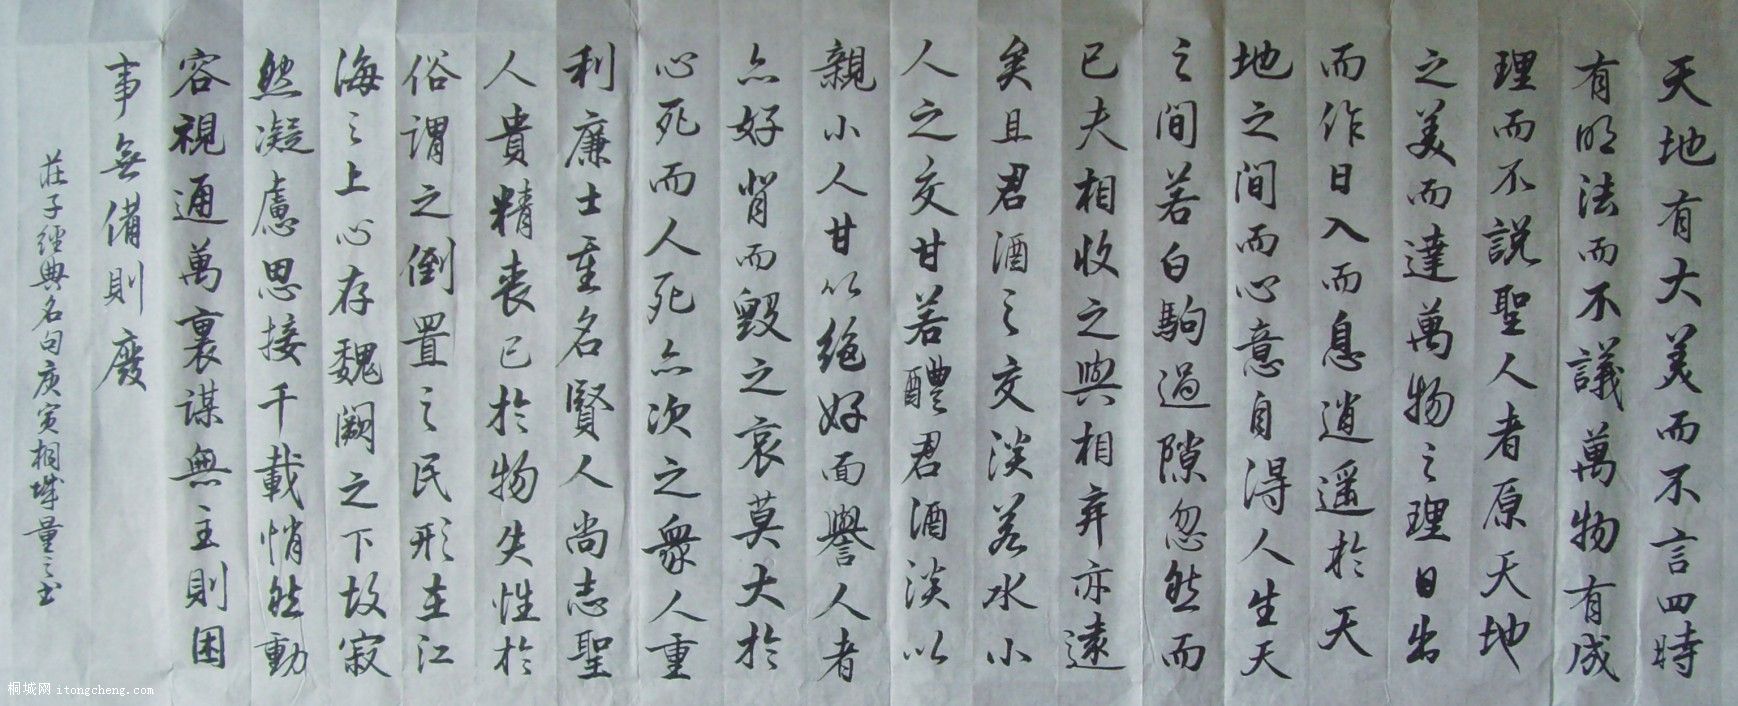 天地有大美而不言四時
有明法而不議萬物有成
理而不説聖人者原天地
之美而達萬物之理日出
而作日入而息逍遥於天
地之間而心意自得人生天
之間若白駒過隙忽然而
已夫相收之與相弃亦遠
矣且君酒之交淡若水小
人之交甘若醴君酒淡以
親小人甘以绝好面譽人者
亦好背而毀之哀莫大於
心死而人死亦次之衆人重
利廉士重名賢人尚志聖
人貴精喪己於物失性於
俗謂之倒置之民形在江
海之上心存魏闕之下故寂
然凝慮思接千載悄然動
容視通萬裏謀無主則困
事無備則廢
莊子經典名句庚寅桐城量之书
桐城网 itongcheng.com